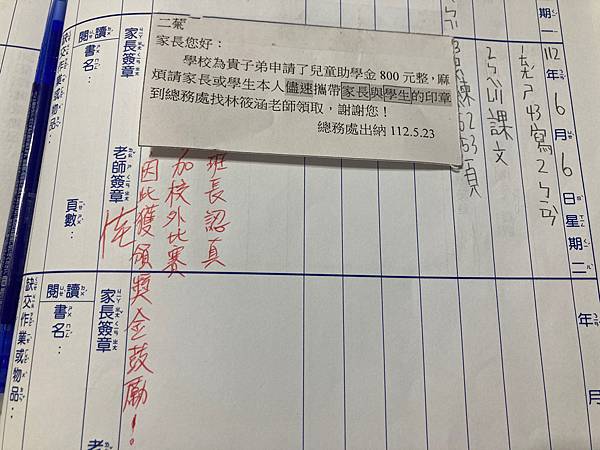 二菊
家長您好：
學校為貴子弟申請了兒童助學金 800 元整，麻
煩請家長或學生本人儘速攜帶家長與學生的印章
到總務處找林筱涵老師領取，謝謝您！
總務處出納 112.5.23
期一
112年6月6日星期二
課文
班長認真
加校外比賽
因此獲領獎金鼓勵！
家長簽章
老師簽章
閱讀
書名：
頁數：
缺交作業或物品：
年
月
家長簽章
老
閱讀
書名：
缺交作業或物品：